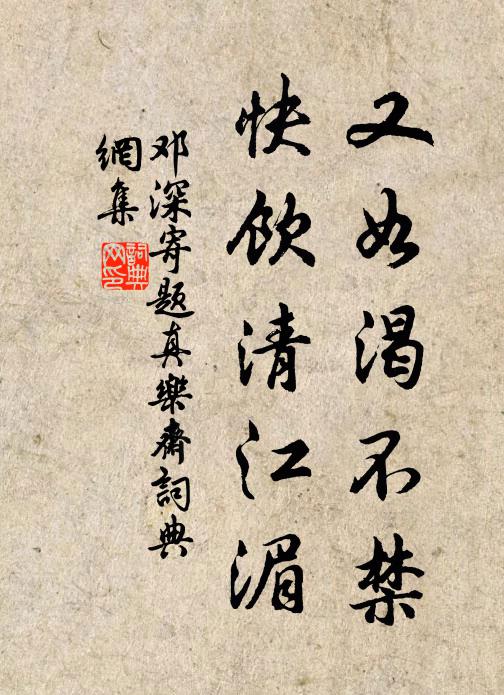 又如渴不禁
快饮清江湄
邓深寄题真樂斋詞典
網集
詞典
网印